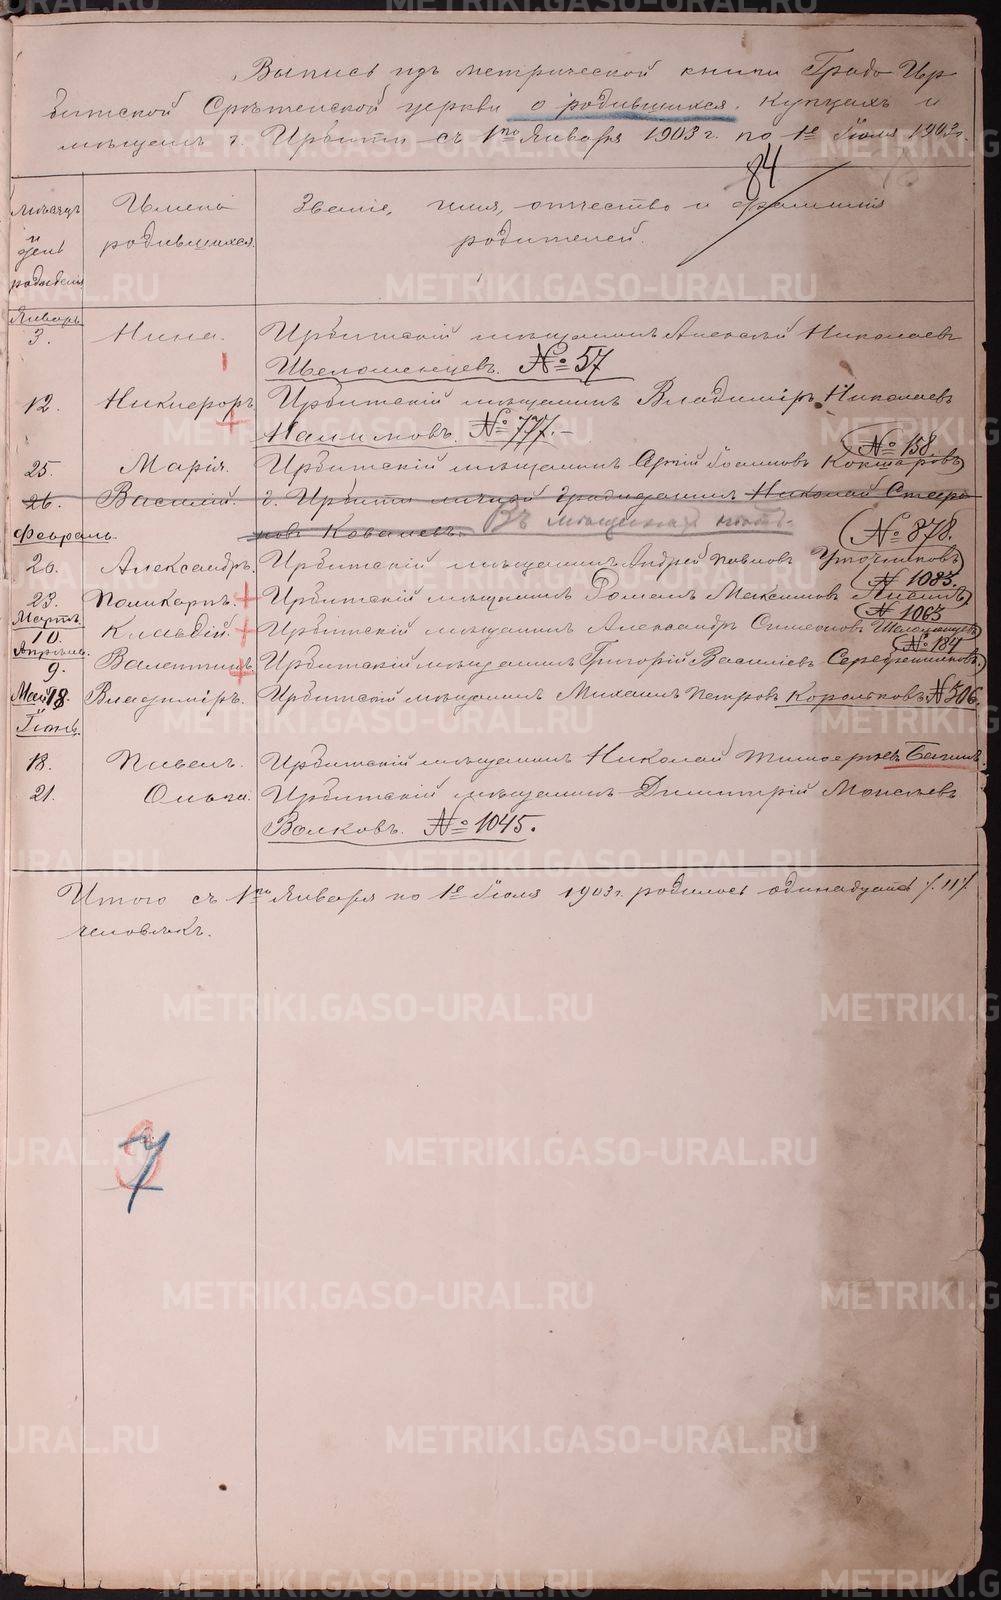 Выпись изъ метрической книги Градо Ир
битской Срѣтенской церкви о родившихся. Купцахъ и
мѣщанъ г. Ирбити съ 1го Января 1903 г. по 1е Іюля 1903 г.
84
Мѣсяцъ и день рожденія
Имена родившихся.
Званіе, имя, отчество и фамилія родителей.
Январь
3. Нина. Ирбитскій мѣщанинъ Алексѣй Николаевъ
Шеломенцевъ. № 57
12. Никифоръ Ирбитскій мѣщанинъ Владиміръ Николаевъ
Налимовъ. № 777.
№ 158.
25. Марія. Ирбитскій мѣщанинъ Сергій Іоанновъ Кокшаровъ
26. Василій. г. Ирбити личный гражданинъ Николай
Ковалевъ. Въ мѣщанскихъ нѣтъ.
Февраль. № 878.
20. Александръ. Ирбитскій мѣщанинъ Андрей Павловъ Уточниковъ
№ 1083.
23. Поликарпъ. Ирбитскій мѣщанинъ Романъ Максимовъ
Мартъ № 1063
10. Клавдій. Ирбитскій мѣщанинъ Александръ Симеоновъ Шеломенцевъ
Апрѣль. № 184
9. Валентинъ Ирбитскій мѣщанинъ Григорій Василіевъ Серебренниковъ.
Май 18. Владиміръ. Ирбитскій мѣщанинъ Михаилъ Петровъ Корольковъ № 306.
Іюнь
18. Павелъ. Ирбитскій мѣщанинъ Николай Тимофеевъ
21. Ольга. Ирбитскій мѣщанинъ Димитрій Моисѣевъ
Волковъ. № 1045.
Итого съ 1го Января по 1е Іюля 1903 г. родилось одинадцать /.11/.
человѣкъ.
7
METRIKI.GASO-URAL.RU